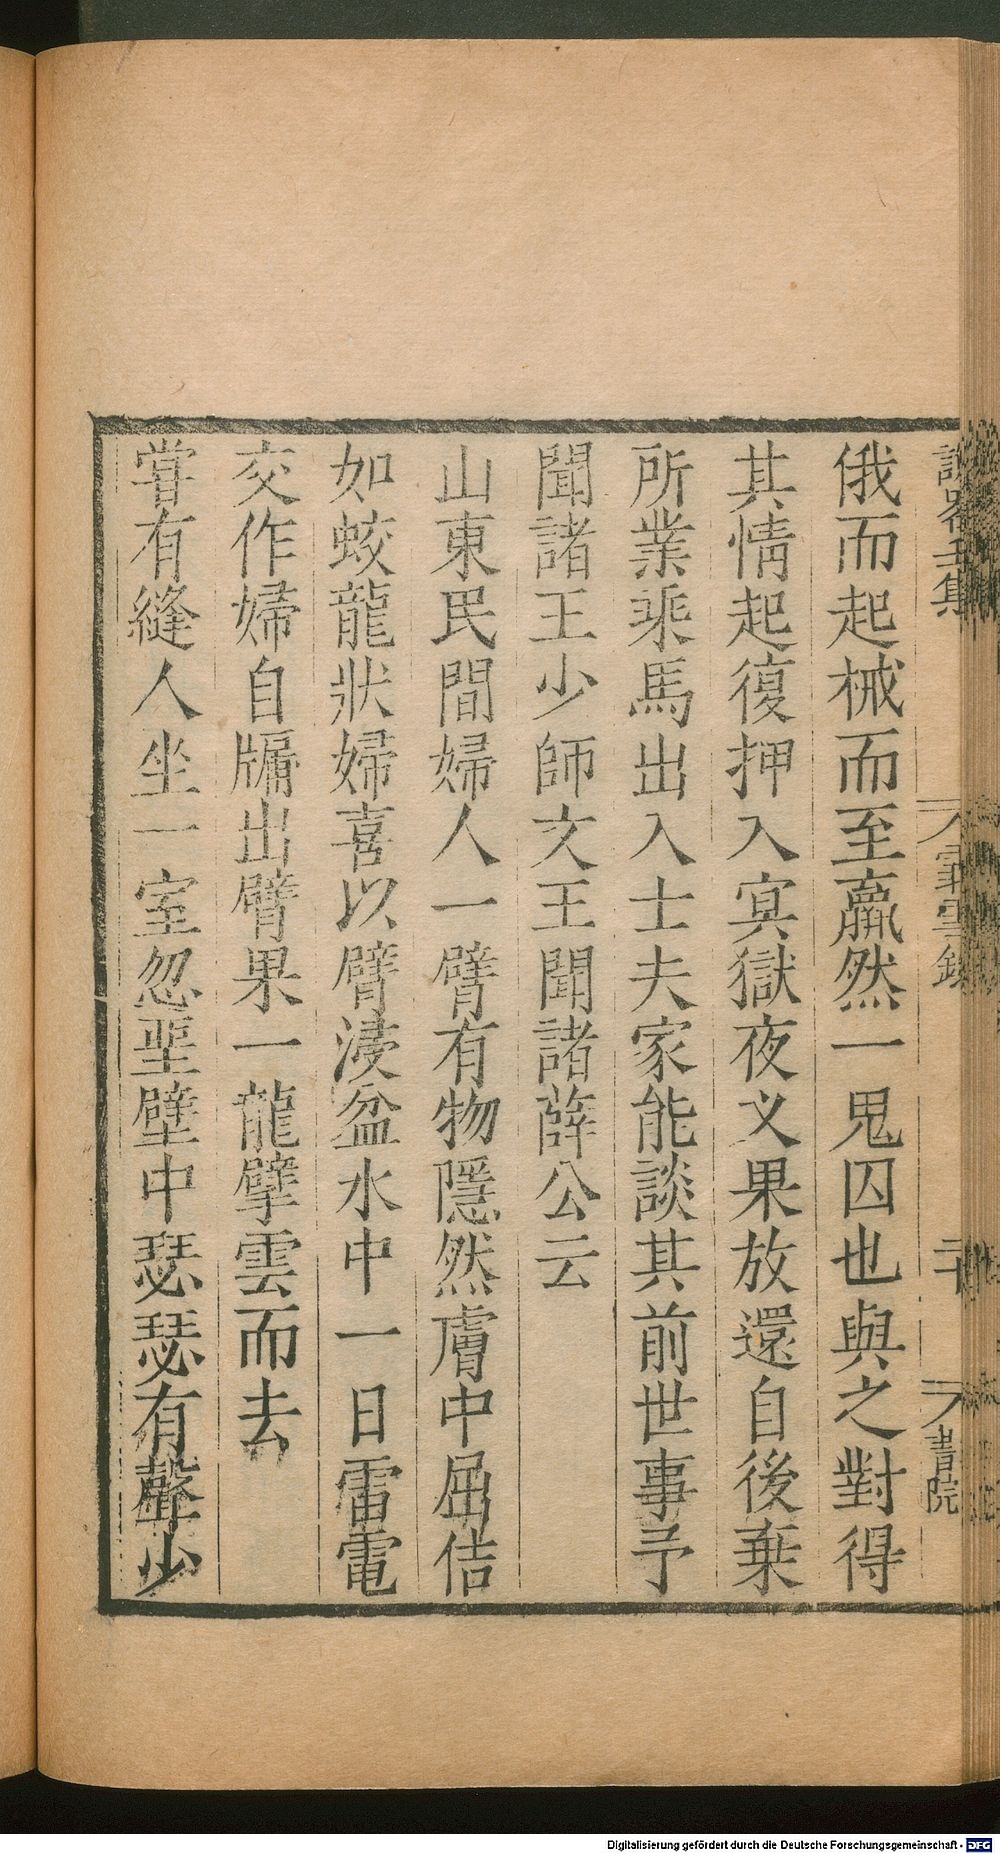 俄而起械而至羸然一鬼囚也與之對得
其情起復押入冥獄夜叉果放還自後棄
所業乘馬出入士夫家能談其前世事予
聞諸王少師文王聞諸薛公云
山東民間婦人一臂有物隱然膚中屈佶
如蛟龍狀婦喜以臂浸盆水中一日雷電
交作婦自牖出臂果一龍擘雲而去
嘗有縫人坐一室忽聖壁中瑟瑟有聲少
書院
Digitalisierung gefördert durch die Deutsche Forschungsgemeinschaft - DFG